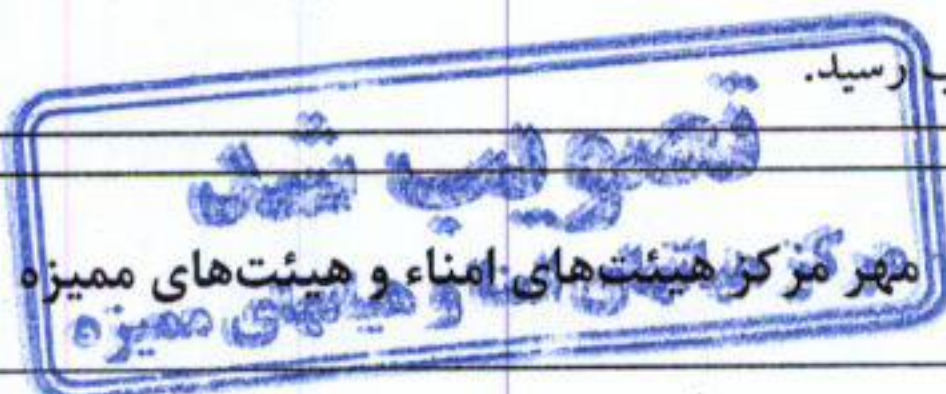 رسید.
تصویب شد
مهر مرکز هیئت‌های امناء و هیئت‌های ممیزه
مرکز هیئت‌های امناء و هیئتهای ممیزه